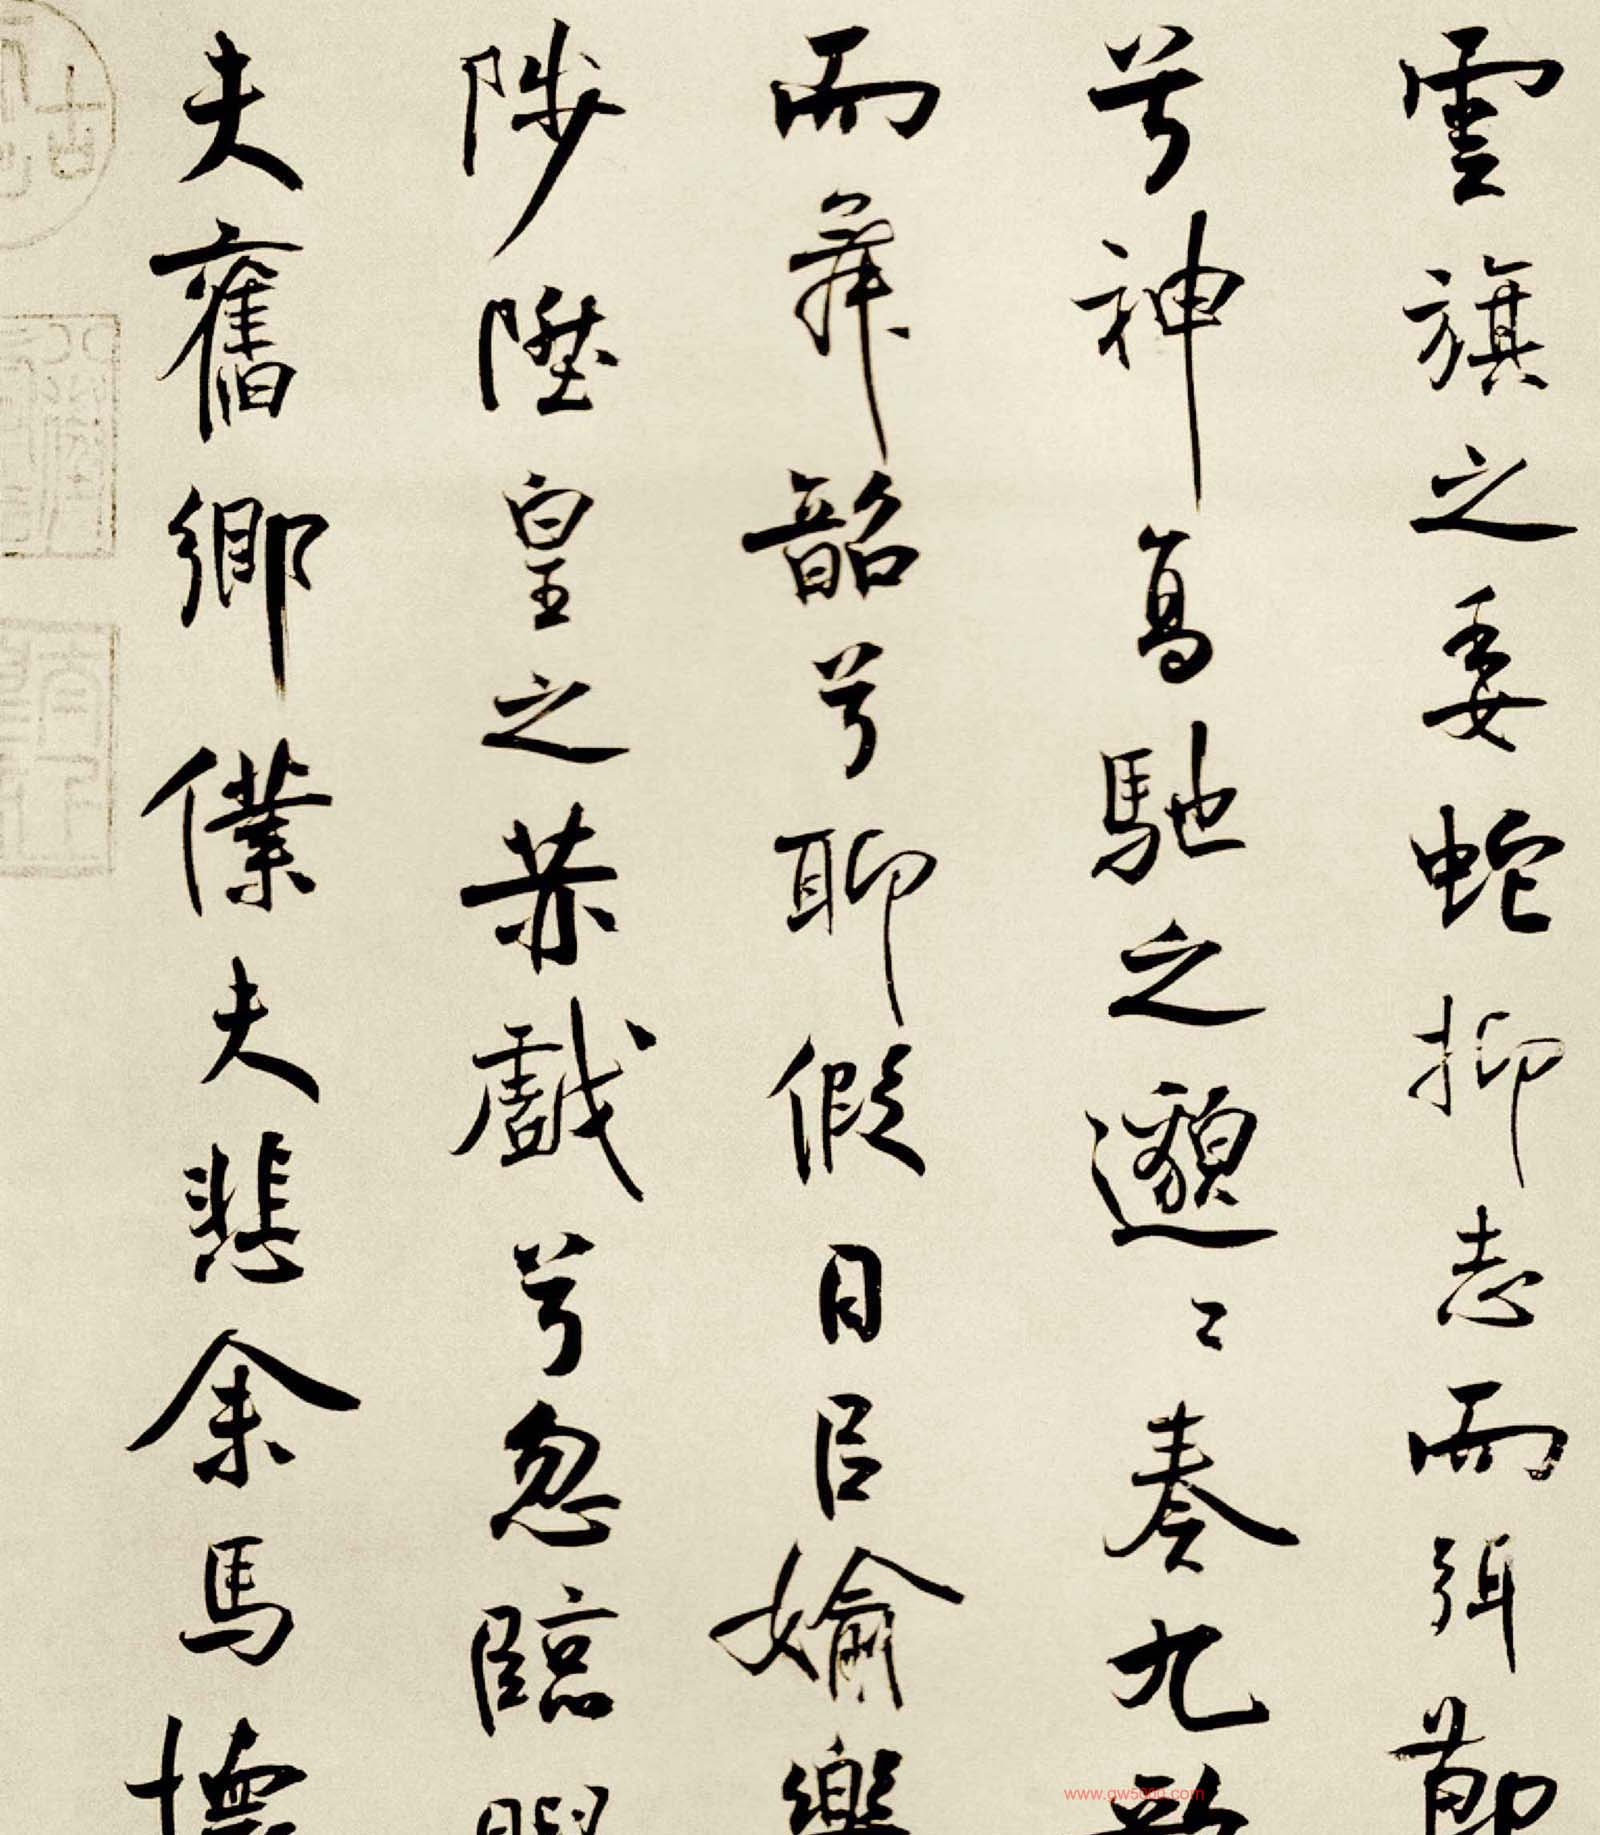 雲旗之委蛇抑志而弭節
兮神高馳之邈〻奏九歌
而舞韶兮聊假日㠯媮樂
陟陞皇之赫戲兮忽臨睨
夫舊鄉僕夫悲余馬懷
www.gw5000.com